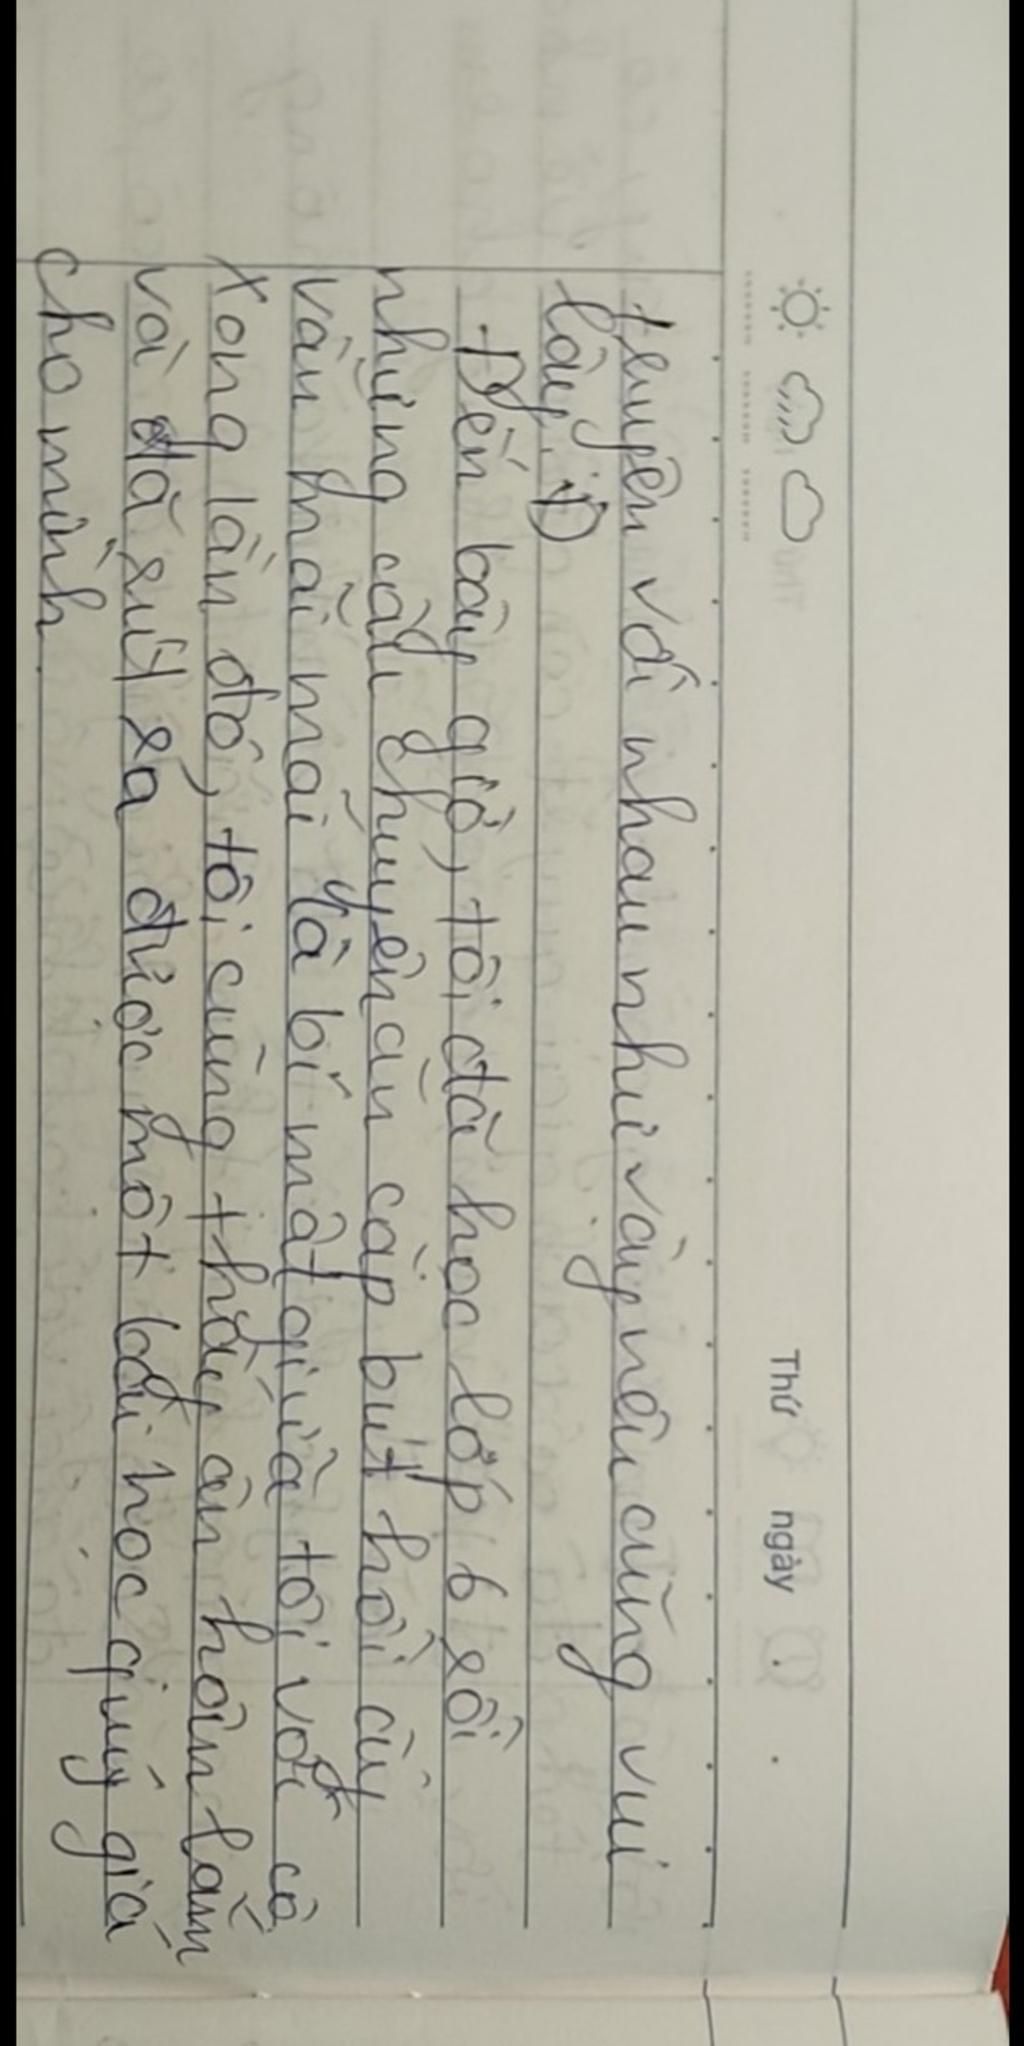 Thứ ngày
truyện với nhau như vậy nên cũng vui
lây. :D
Đến bây giờ, tôi đã học lớp 6 rồi
nhưng câu chuyện ăn cắp bút hồi ấy
vẫn mãi mãi là bí mật giữa tôi với cô
xong lần đó, tôi cũng thấy ân hận lắm
và đã rút ra được một bài học quý giá
cho mình.